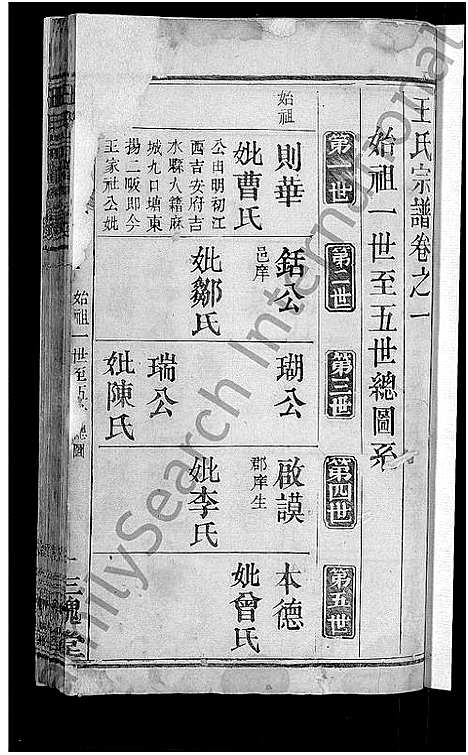 王氏宗譜卷之一
始祖一世至五世總圖系
第一世
第二世
第三世
第四世
第五世
始祖
則華
妣曹氏
公由明初江
西吉安府吉
水縣入籍麻
城九口塘東
揚二畈即今
王家社公妣
銛公
邑庠
妣鄒氏
瑚公
瑞公
妣陳氏
啟謨
郡庠生
妣李氏
本德
妣曾氏
始祖一世至五世總圖
一
三槐堂
FamilySearch International